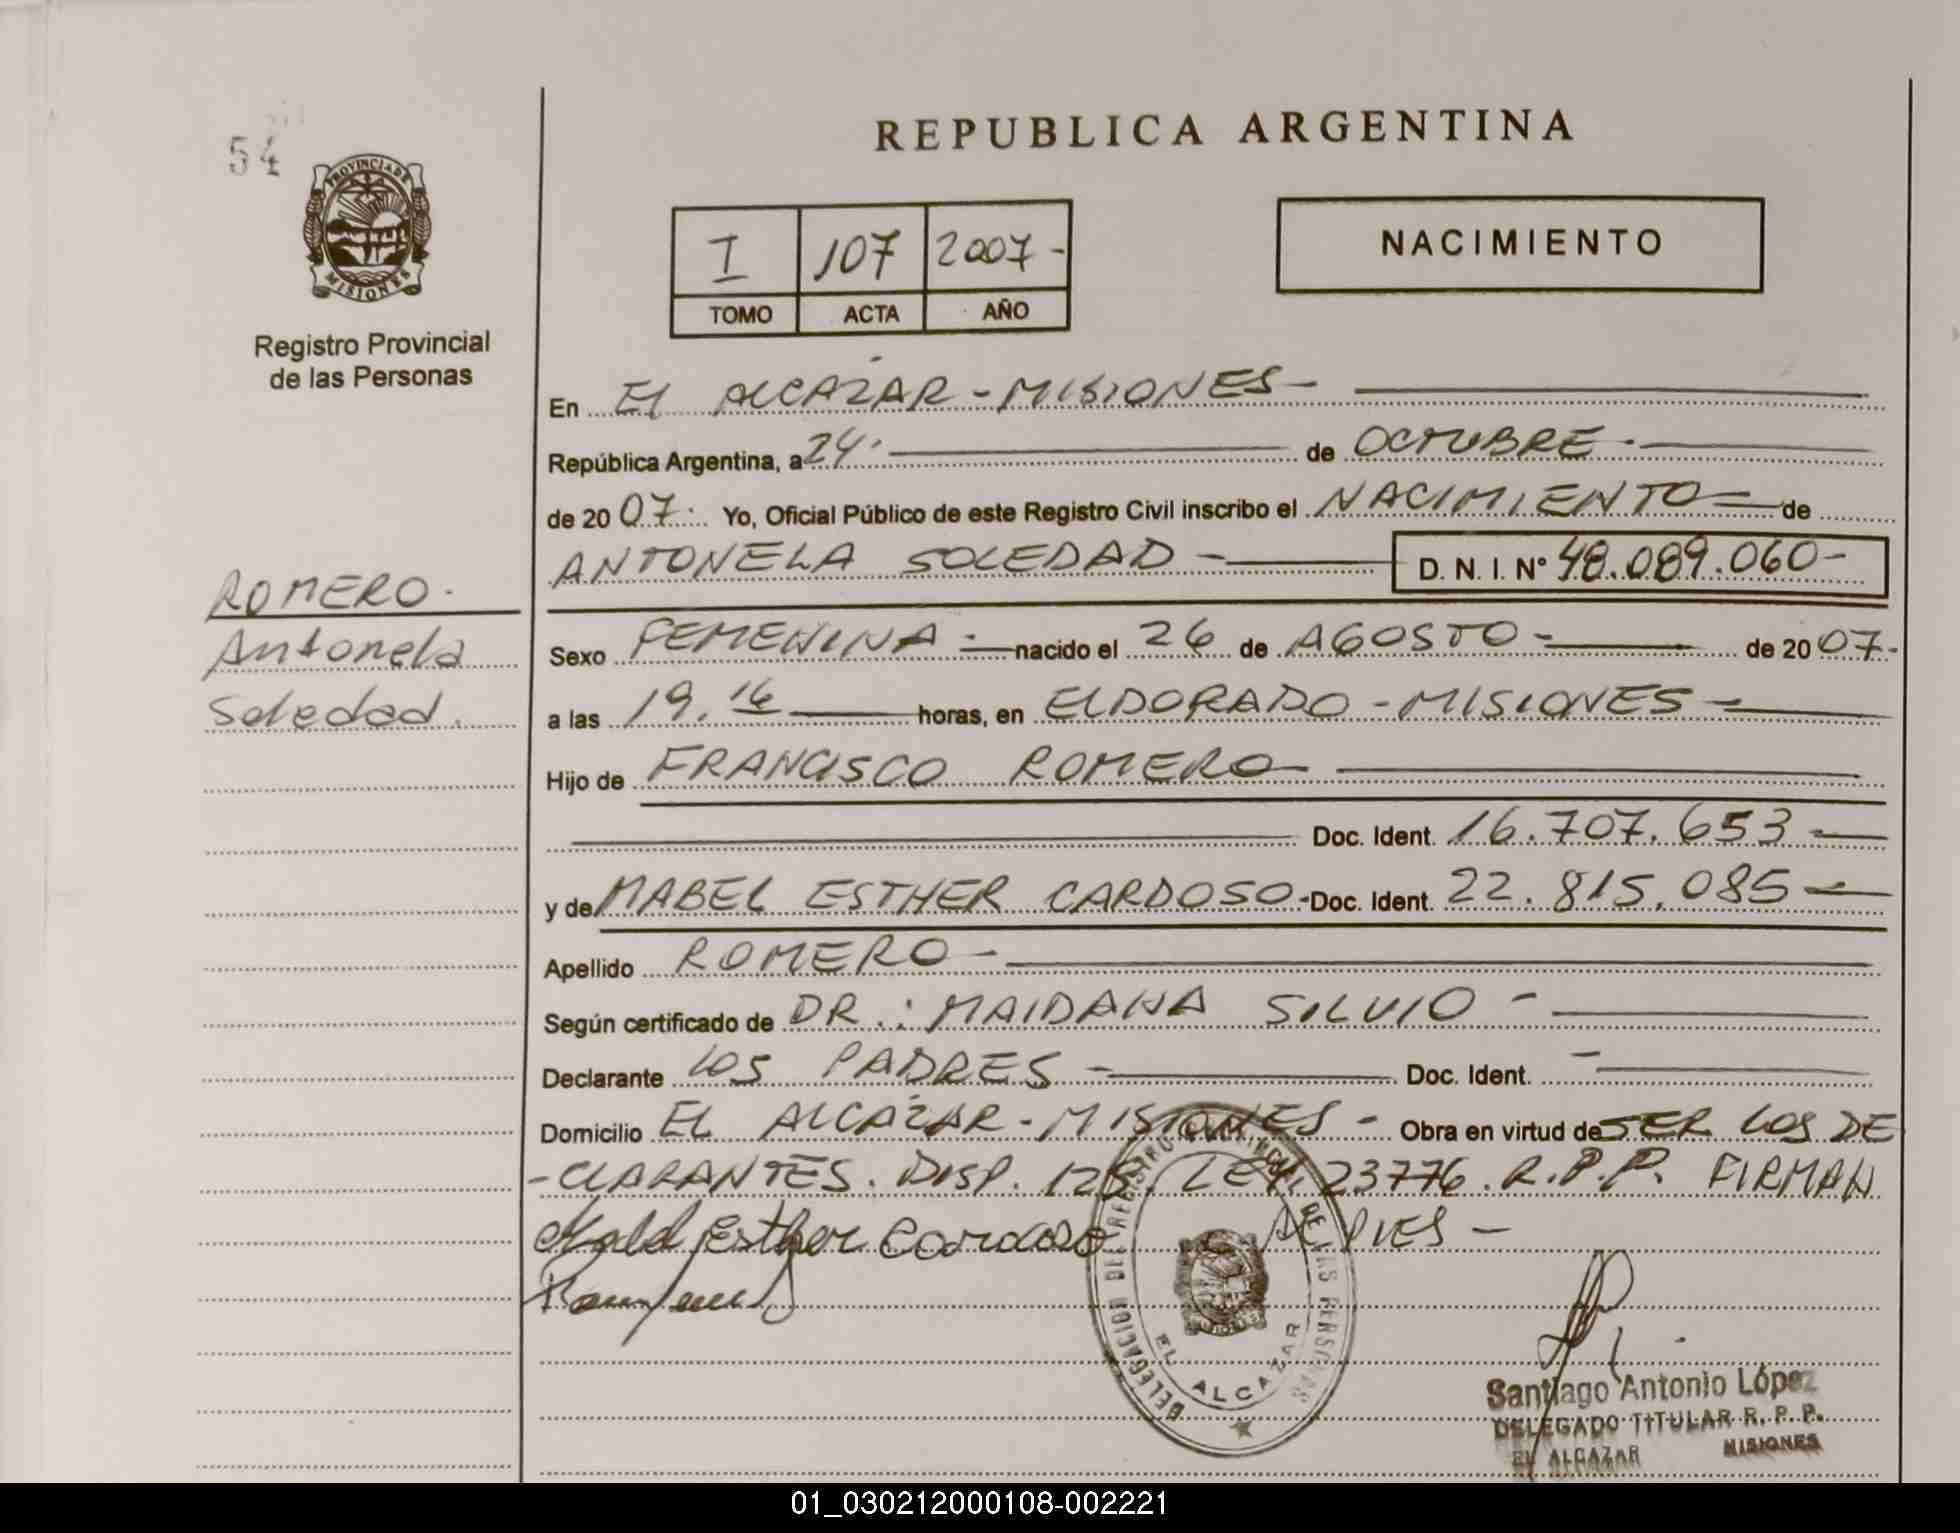 54
PROVINCIA DE
MISIONES
Registro Provincial
de las Personas
REPUBLICA ARGENTINA
I 107 2007-
TOMO ACTA AÑO
NACIMIENTO
En El ALCAZAR - MISIONES -
República Argentina, a 24. de OCTUBRE.
de 20 07. Yo, Oficial Público de este Registro Civil inscribo el NACIMIENTO de
ANTONELA SOLEDAD - D. N. I. N° 48.089.060-
ROMERO.
Antonela
Soledad.
Sexo FEMENINA - nacido el 26 de AGOSTO - de 20 07.-
a las 19.16 horas, en ELDORADO - MISIONES -
Hijo de FRANCISCO ROMERO
Doc. Ident. 16.707.653 -
y de MABEL ESTHER CARDOSO - Doc. Ident. 22.815.085 -
Apellido ROMERO -
Según certificado de DR.: MAIDANA SILVIO -
Declarante LOS PADRES - Doc. Ident. -
Domicilio EL ALCAZAR - MISIONES - Obra en virtud de SER LOS DE
-CLARANTES. DISP. 128. LEY. 23776. R.P.P. FIRMAN
AL PIES -
Esther Cardoso
DELEGACION DEL REGISTRO PROVINCIAL DE LAS PERSONAS
EL ALCAZAR
Santiago Antonio López
DELEGADO TITULAR R. P. P.
EL ALCAZAR MISIONES
01_030212000108-002221